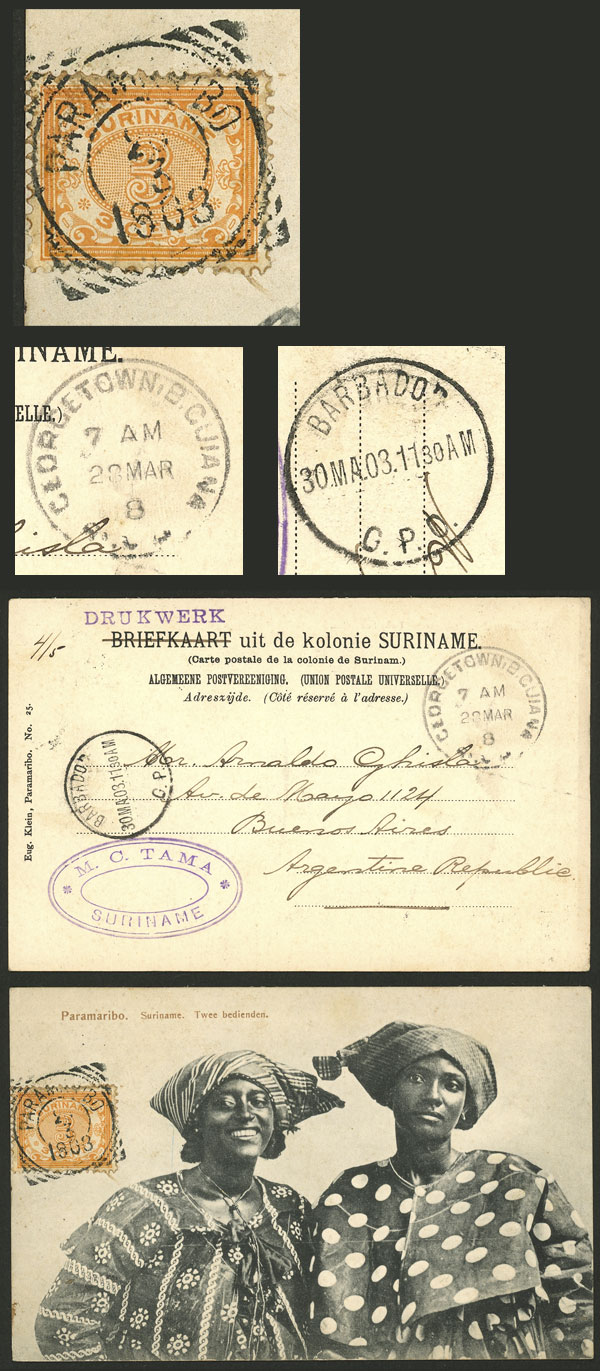 PARAMARIBO
SURINAME
3
1903
INAME.
ELLE.)
GEORGETOWN, B. GUIANA
7 AM
28 MAR
8
BARBADOS
30.MA.03.1130AM
G.P.O.
DRUKWERK
4/5
BRIEFKAART uit de kolonie SURINAME.
(Carte postale de la colonie de Surinam.)
ALGEMEENE POSTVEREENIGING. (UNION POSTALE UNIVERSELLE.)
Adreszijde. (Côté réservé à l'adresse.)
GEORGETOWN, B. GUIANA
7 AM
28 MAR
8
Eug. Klein, Paramaribo. No. 25.
BARBADOS
30.MA.03.1130AM
G.P.O.
Mr. Arnaldo Ghislan
Av. de Mayo 1124
Buenos Aires
Argentine Republic
M. C. TAMA
SURINAME
Paramaribo. Suriname. Twee bedienden.
PARAMARIBO
SURINAME
1903